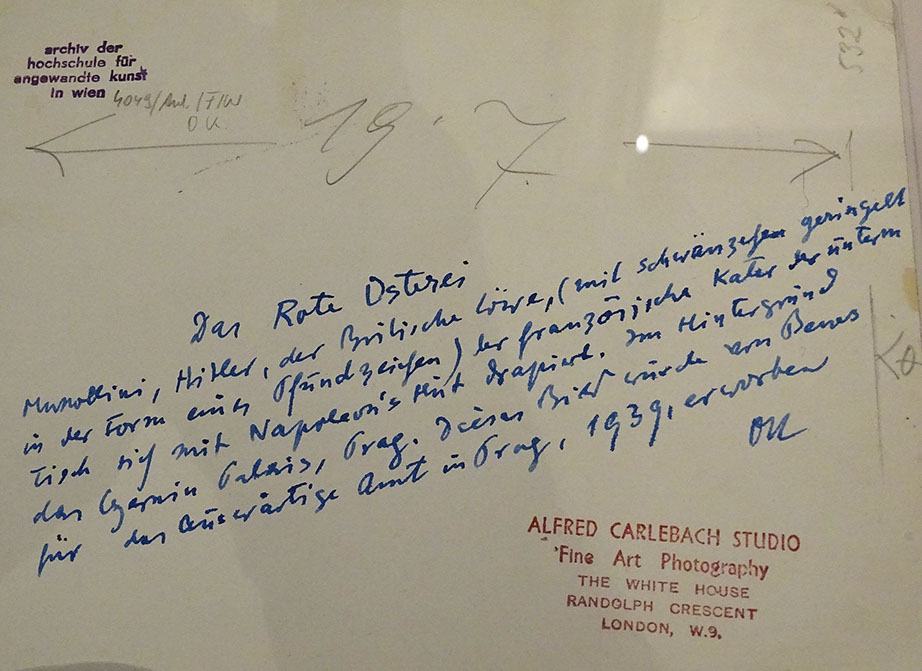 archiv der
hochschule für
angewandte kunst
in wien 4049/Aul/FW
O.K.
19.7
Das Rote Osterei
Mussolini, Hitler, der Britische Löwe, (mit schwänzchen geringelt
in der Form eines Pfundzeichen) der französische Kater der unterm
Tisch sich mit Napoleon's Hut drapiert. Im Hintergrund
das Czernin Palais, Prag. Dieses Bild wurde von Benes
für das Auswärtige Amt in Prag, 1939, erworben
OK
ALFRED CARLEBACH STUDIO
Fine Art Photography
THE WHITE HOUSE
RANDOLPH CRESCENT
LONDON, W.9.